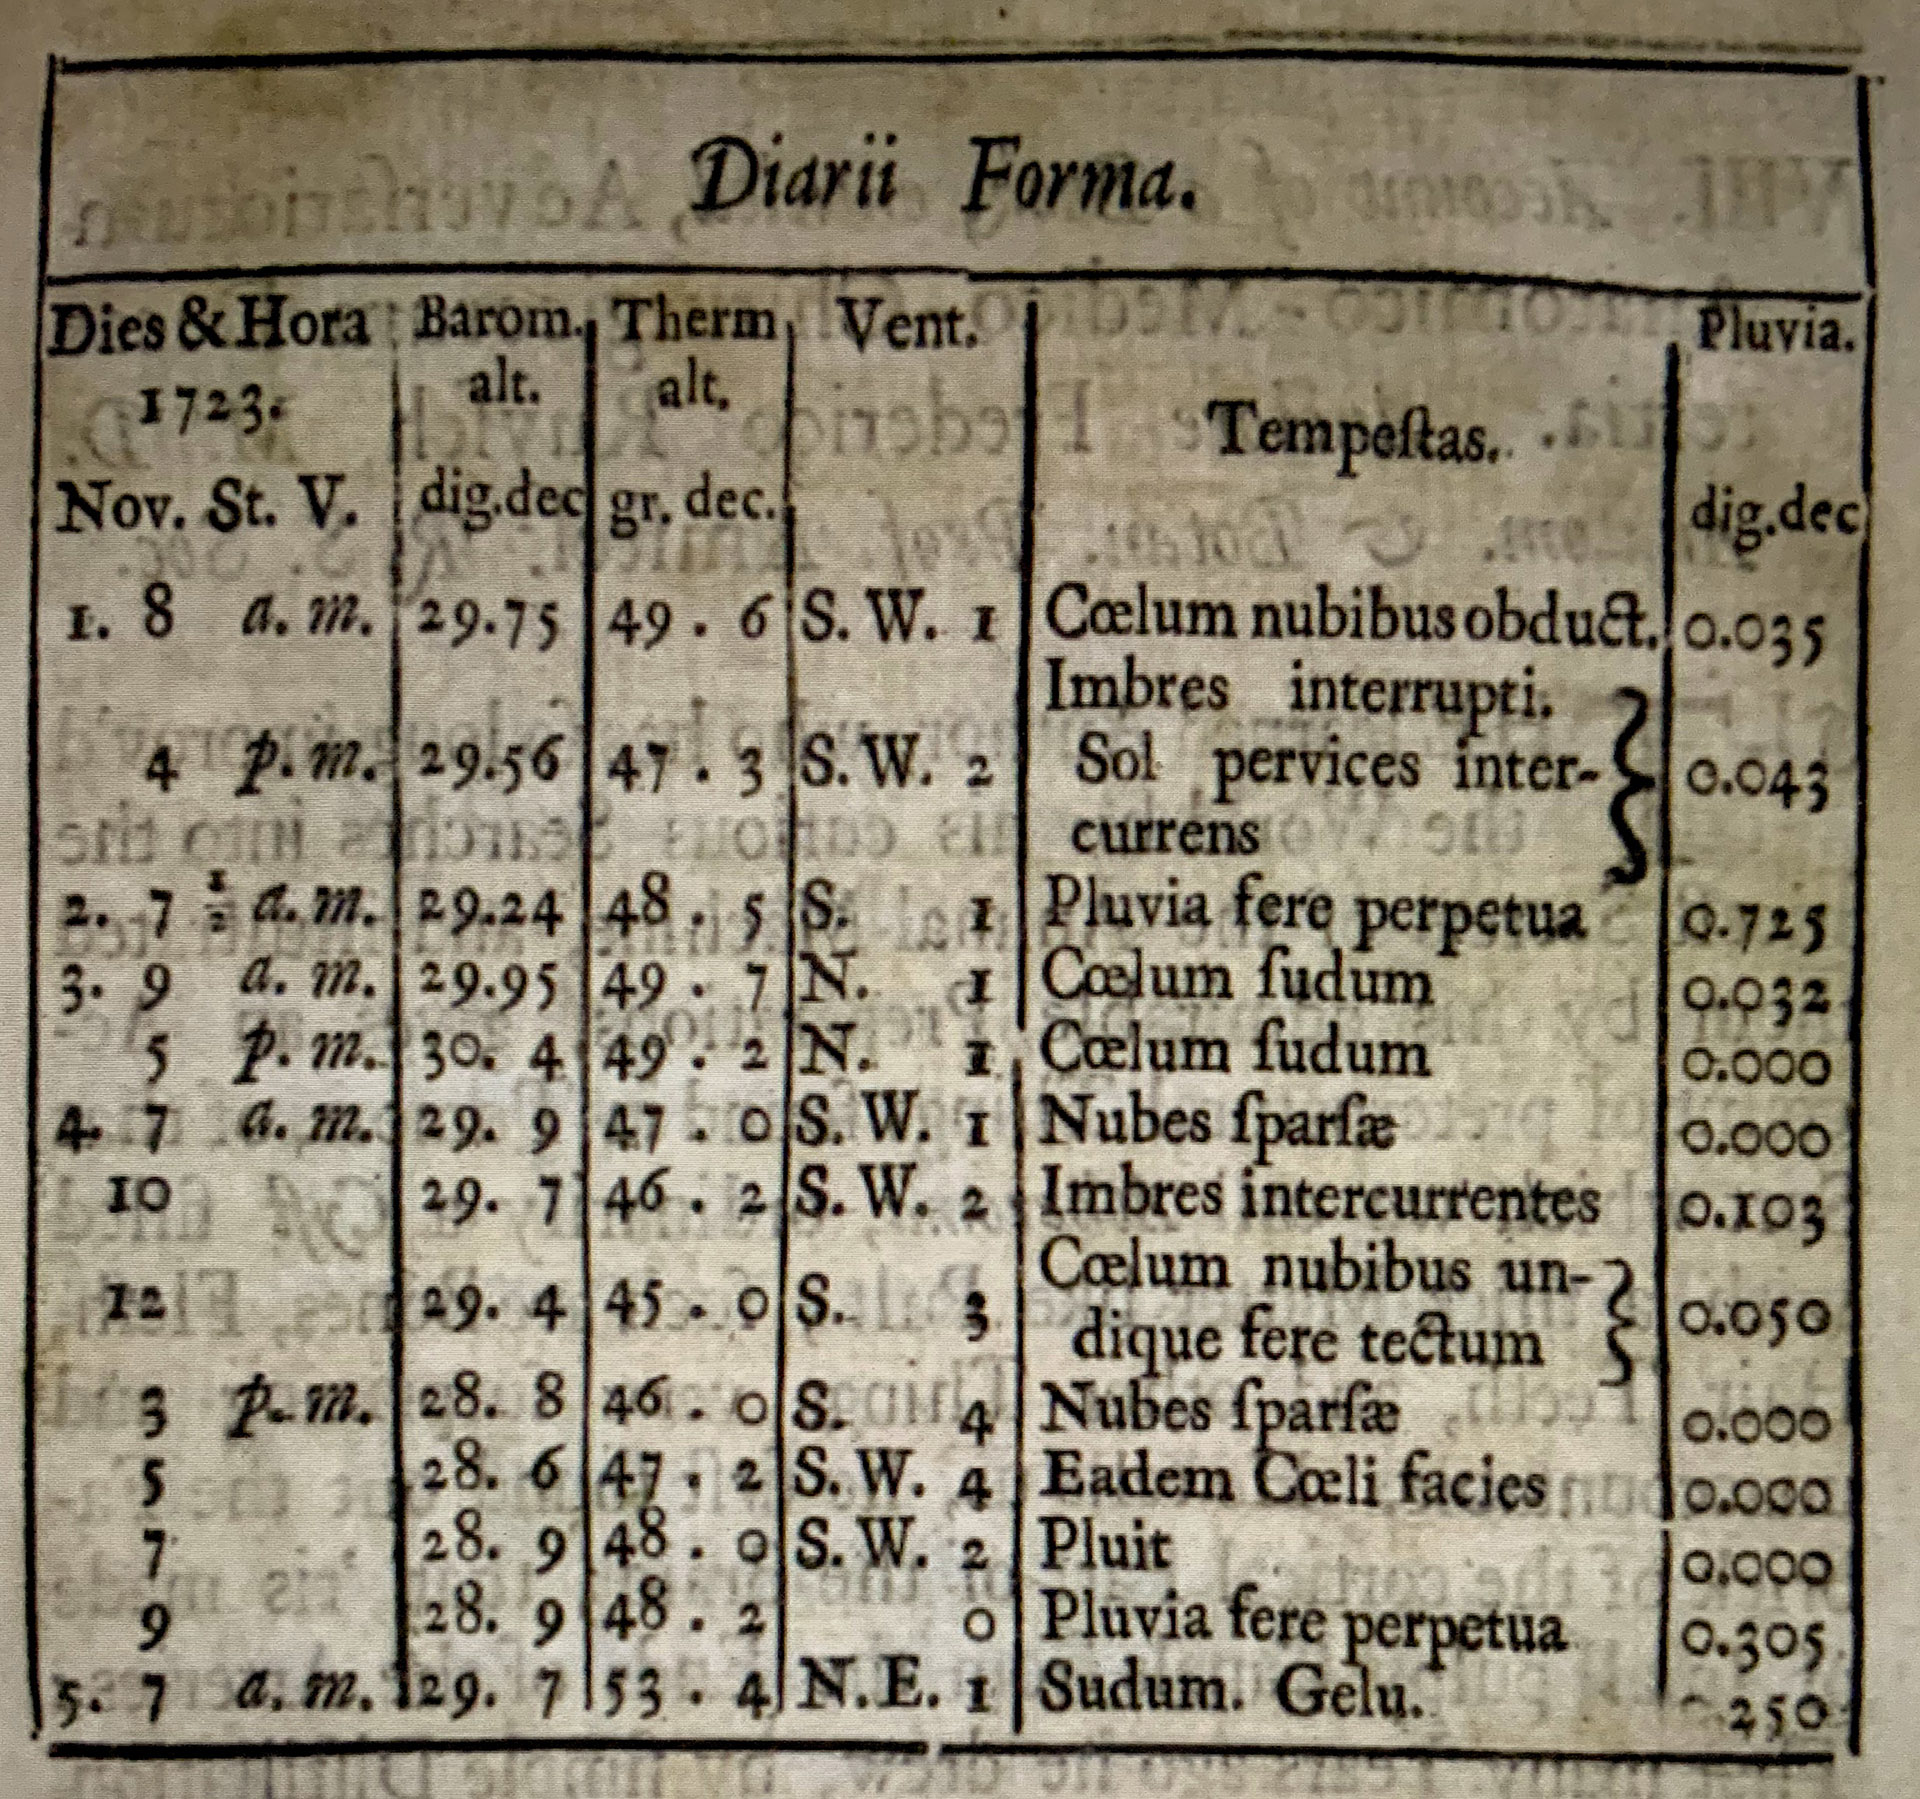 Diarii Forma.
Dies & Hora Barom. Therm Vent. Pluvia.
1723. alt. alt. Tempeſtas.
Nov. St. V. dig.dec gr. dec. dig.dec
1. 8 a. m. 29.75 49 . 6 S. W. 1 Cœlum nubibus obduct. 0.035
Imbres interrupti.
4 p. m. 29.56 47 . 3 S. W. 2 Sol pervices inter- 0.043
currens
2. 7 ½ a. m. 29.24 48 . 5 S. 1 Pluvia fere perpetua 0.725
3. 9 a. m. 29.95 49 . 7 N. 1 Cœlum ſudum 0.032
5 p. m. 30. 4 49 . 2 N. 1 Cœlum ſudum 0.000
4. 7 a. m. 29. 9 47 . 0 S. W. 1 Nubes ſparſæ 0.000
10 29. 7 46 . 2 S. W. 2 Imbres intercurrentes 0.103
Cœlum nubibus un-
12 29. 4 45 . 0 S. 3 dique fere tectum 0.050
3 p. m. 28. 8 46 . 0 S. 4 Nubes ſparſæ 0.000
5 28. 6 47 . 2 S. W. 4 Eadem Cœli facies 0.000
7 28. 9 48 . 0 S. W. 2 Pluit 0.000
9 28. 9 48 . 2 0 Pluvia fere perpetua 0.305
5. 7 a. m. 29. 7 53 . 4 N. E. 1 Sudum. Gelu. 250